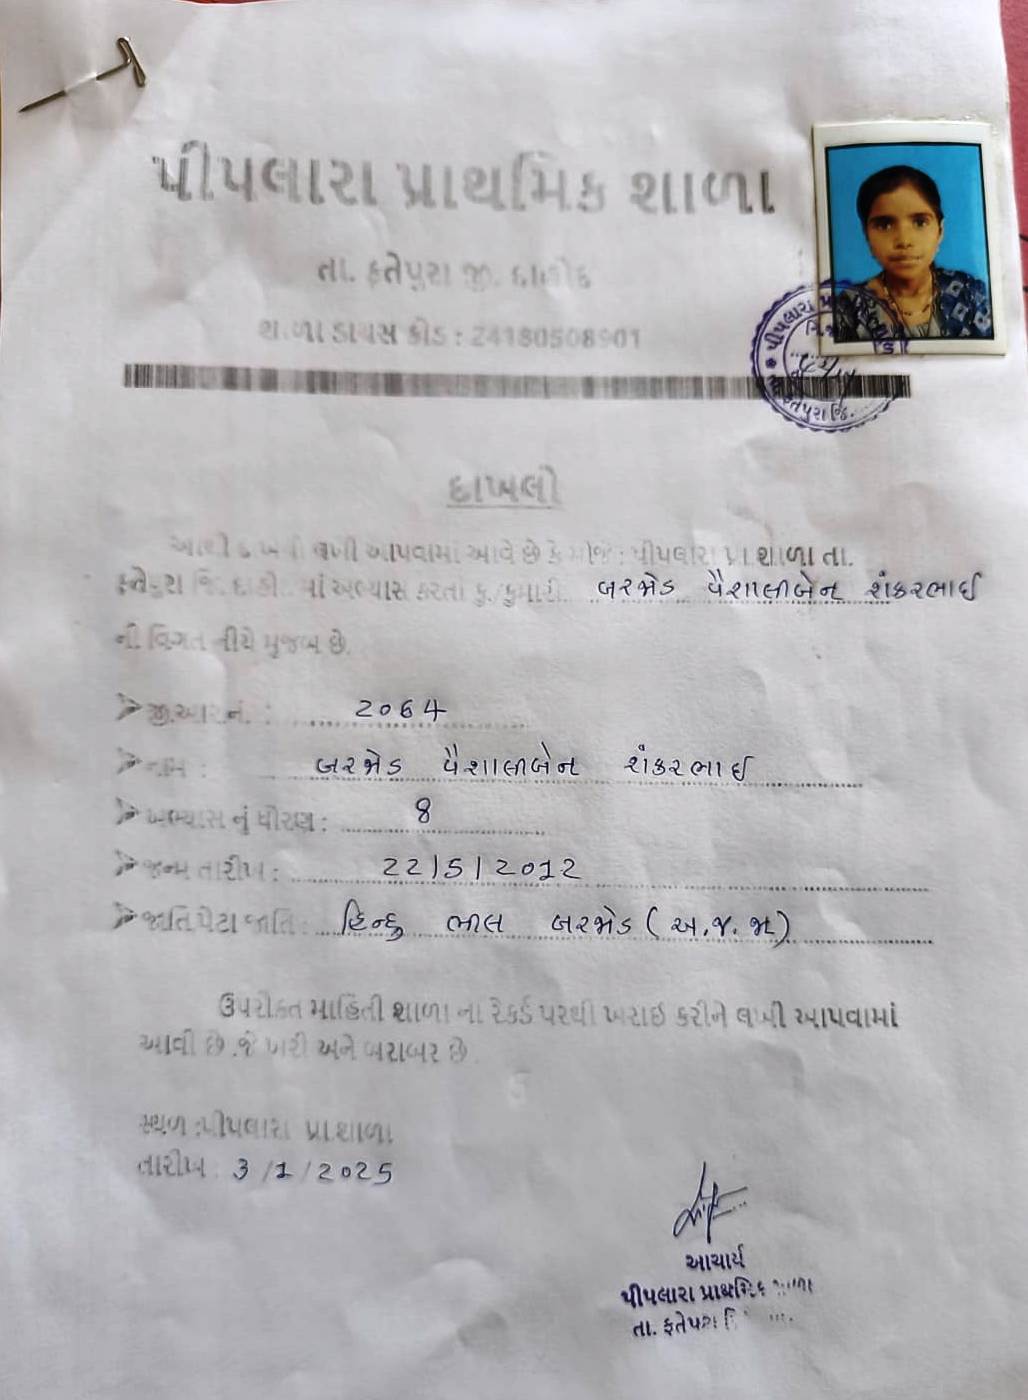 પીપલારા પ્રાથમિક શાળા
તા. ફતેપુરા જી. દાહોદ
શાળા ડાયસ કોડ : 24180508901
પીપલારા
ફતેપુરા જિ.
દાખલો
આથી દાખલો લખી આપવામાં આવે છે કે મોજે : પીપલારા પ્રા.શાળા તા.
ફતેપુરા જિ. દાહોદ માં અભ્યાસ કરતા કુ./કુમારી. બરજોડ વૈશાલીબેન શંકરભાઈ
ની વિગત નીચે મુજબ છે.
➢ જી.આર.નં. : 2064
➢ નામ : બરજોડ વૈશાલીબેન શંકરભાઈ
➢ અભ્યાસ નું ધોરણ : 8
➢ જન્મ તારીખ : 22/5/2012
➢ જાતિ પેટા જાતિ : હિન્દુ ભીલ બરજોડ (અ.જ.જા)
ઉપરોક્ત માહિતી શાળા ના રેકર્ડ પરથી ખરાઇ કરીને લખી આપવામાં
આવી છે .જે ખરી અને બરાબર છે .
સ્થળ :પીપલારા પ્રા.શાળા
તારીખ : 3/1/2025
આચાર્ય
પીપલારા પ્રાથમિક શાળા
તા. ફતેપુરા